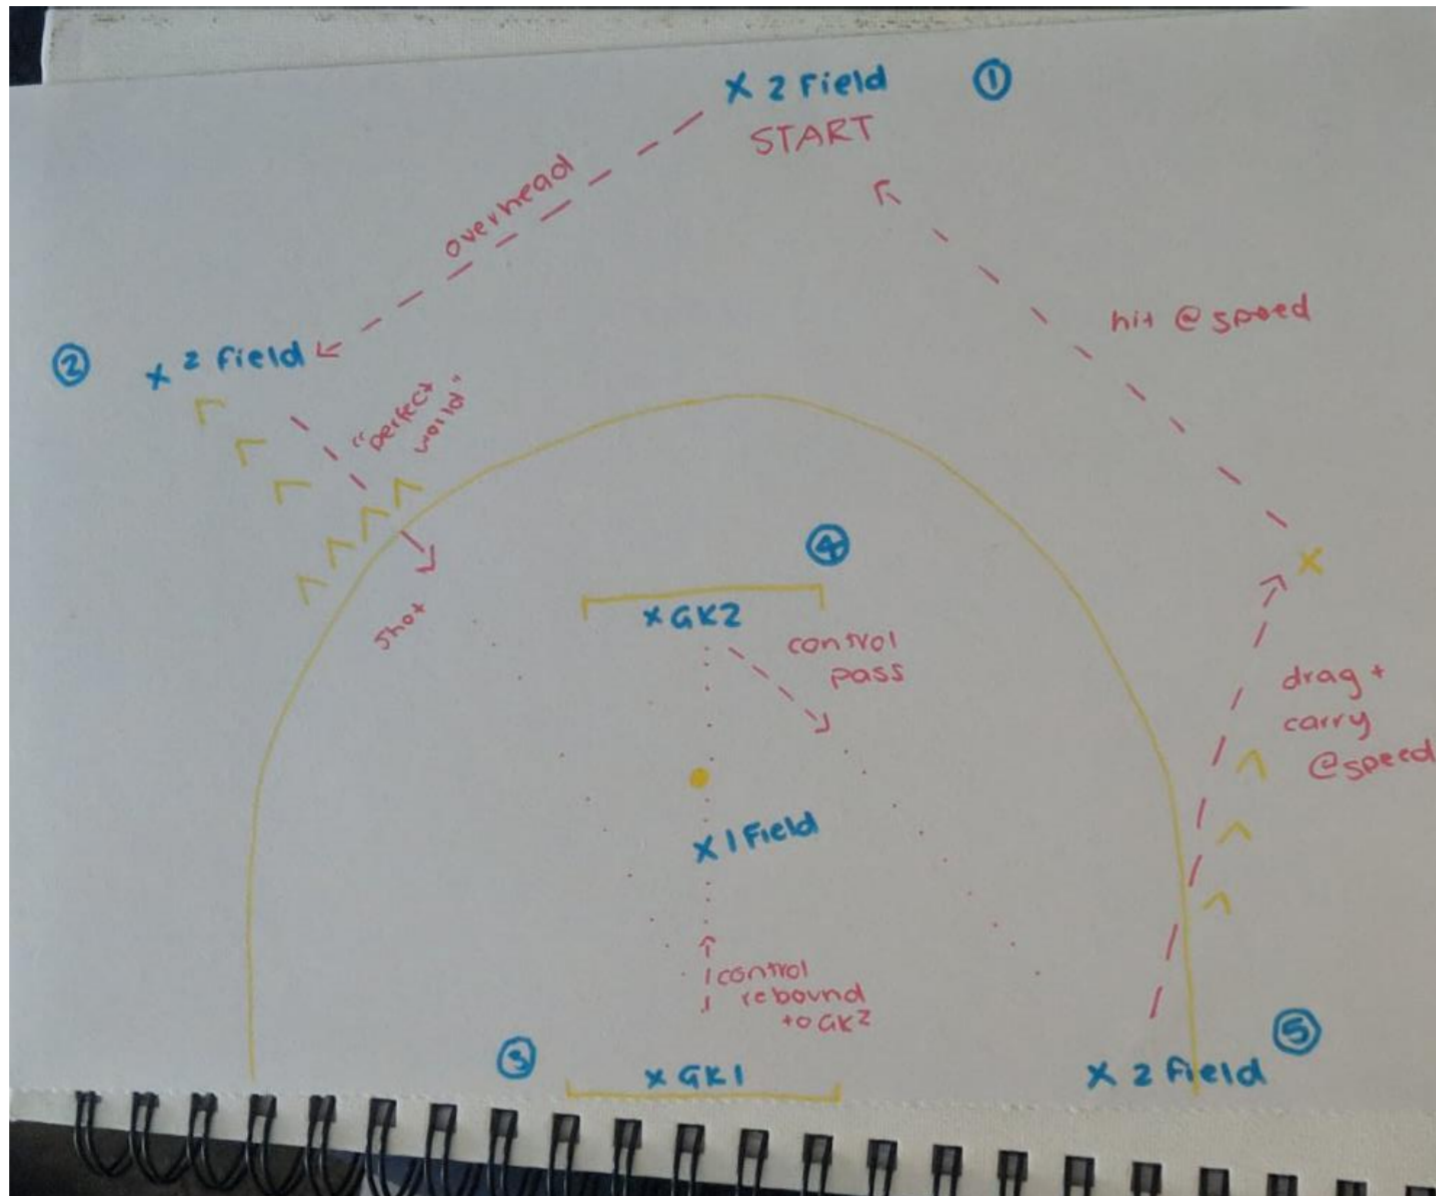 x 2 Field ①
START
overhead
hit @ speed
② x 2 Field
"perfect
world"
shot
④
x GK2
control
pass
drag +
carry
@speed
x
x 1 Field
control
rebound
to GK2
③ x GK1
x 2 Field ⑤